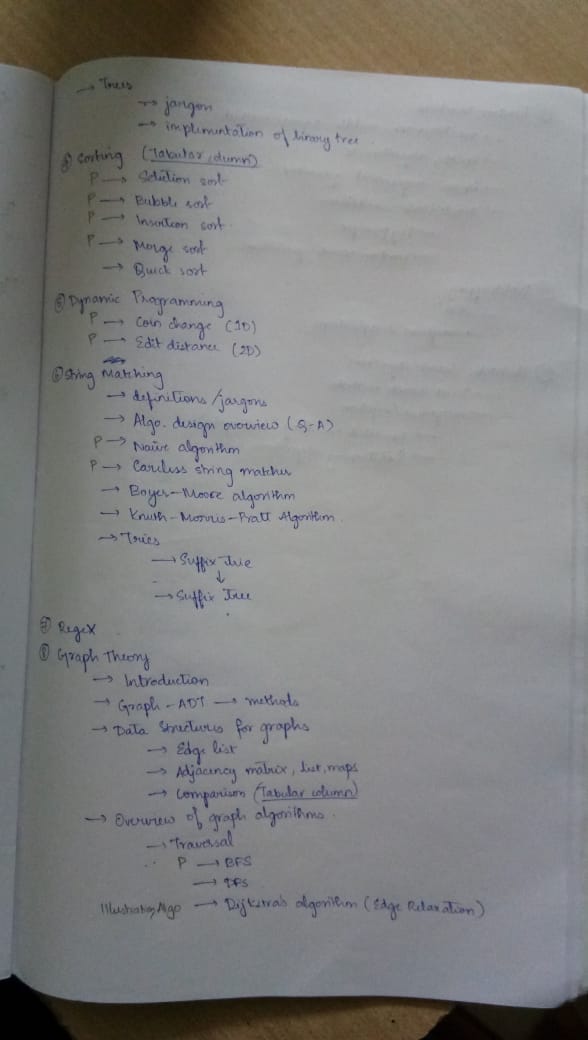 → Trees
→ jargon
→ implementation of binary tree
④ Sorting (Tabular column)
P → Selection sort
P → Bubble sort
P → Insertion sort
P → Merge sort
→ Quick sort
⑤ Dynamic Programming
P → Coin change (1D)
P → Edit distance (2D)
⑥ String Matching
→ definitions/jargons
→ Algo. design overview (Q-A)
P → Naive algorithm
P → Careless string matcher
→ Boyer-Moore algorithm
→ Knuth-Morris-Pratt Algorithm.
→ Tries
→ Suffix Trie
↓
→ Suffix Tree
⑦ Regex
⑧ Graph Theory
→ Introduction
→ Graph - ADT → methods
→ Data Structures for graphs
→ Edge list
→ Adjacency matrix, list, maps
→ Comparison (Tabular column)
→ Overview of graph algorithms.
→ Traversal
P → BFS
→ DFS
Illustration, Algo → Dijkstra's algorithm (Edge Relaxation)